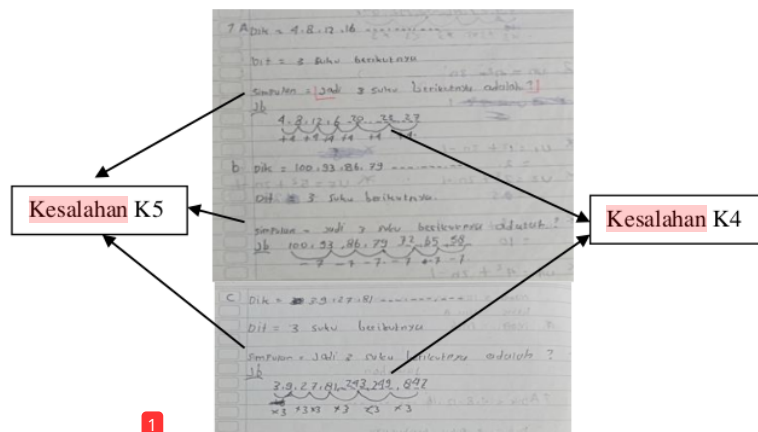 1 A Dik = 4.8.12.16 ............
Dit = 3 suku berikutnya
simpulan = Jadi 3 suku berikutnya adalah ?
Jb
4.8.12.6 20
+4 +4 +4 +4 +4 +4
b Dik = 100.93.86.79 ............
Dit = 3 suku berikutnya.
Simpulan = Jadi 3 suku berikutnya adalah ?
Jb 100.93.86.79 72.65.58
-7 -7 -7 -7 -7 -7
Kesalahan K5
Kesalahan K4
C Dik = 3.9.27.81 ............
Dit = 3 suku berikutnya
simpulan = Jadi 3 suku berikutnya adalah ?
Jb
3.9.27.81 243.249.
×3 ×3 ×3 ×3 ×3 ×3
1